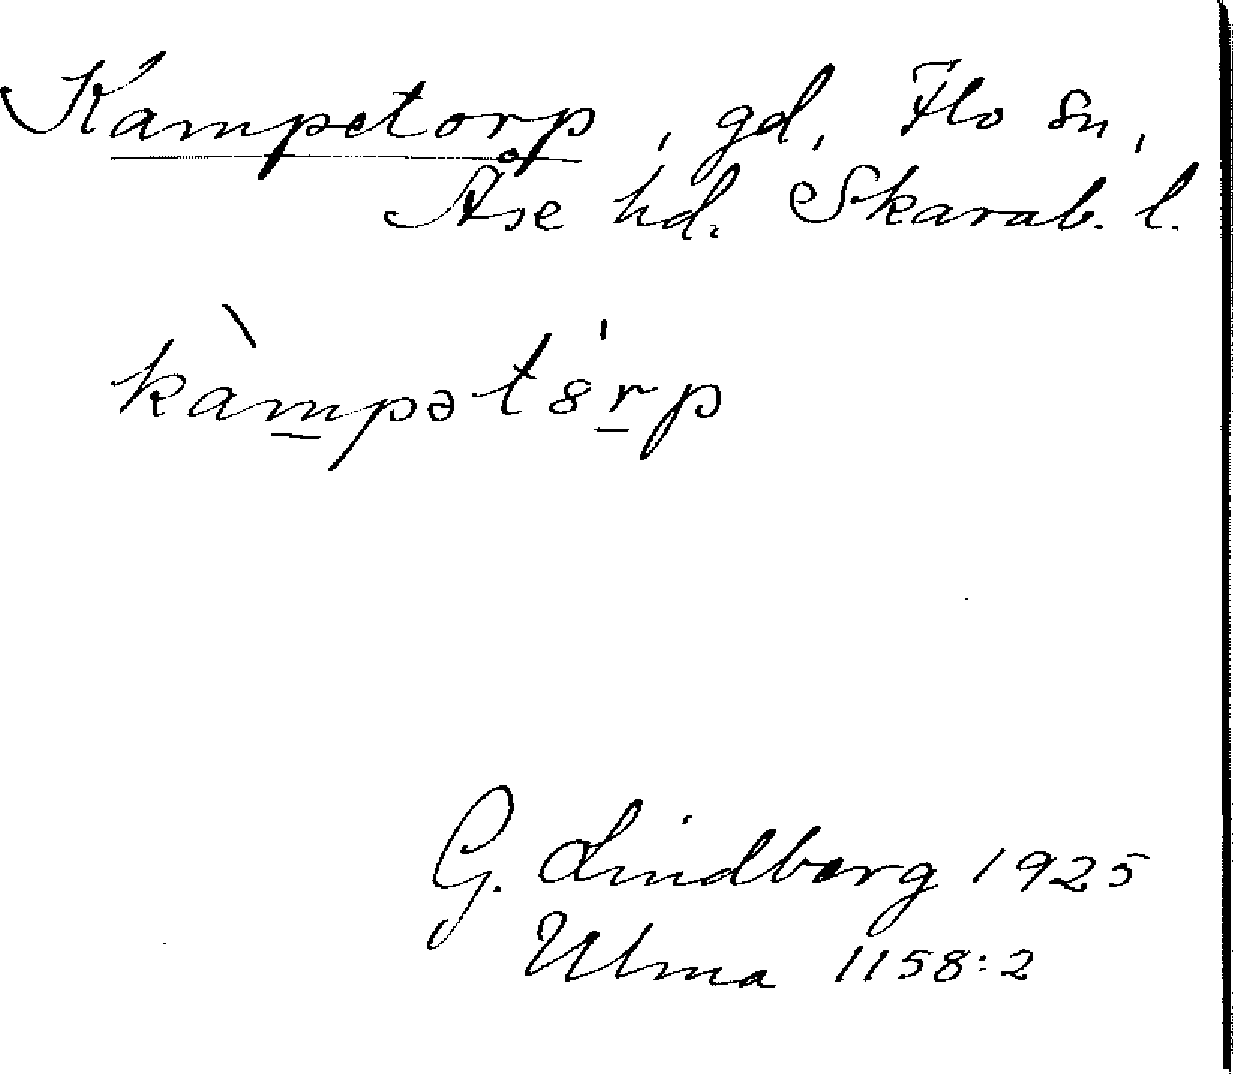 Kampetorp, gd, Flo sn,
Åse hd. Skarab. l.
kàmpətȣrp
G. Lindberg 1925
Ulma 1158:2